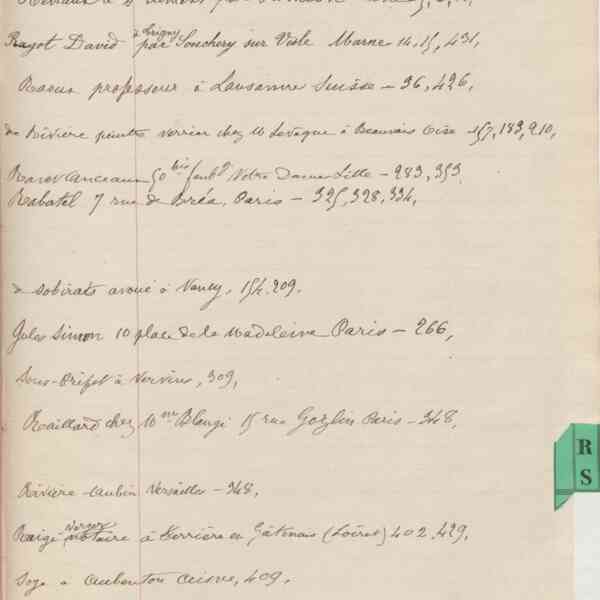 Rayot David à Origny par Sonchery sur Vesle Marne 14, 15, 431,
Raoux professeur à Lausanne Suisse - 36, 426,
de Rivière peintre verrier chez M Levêque à Beauvais Oise 157, 183, 210,
50 bis faubg Notre Dame Lille - 283, 353.
Rabatel 7 rue de Bréa, Paris - 325, 328, 334,
de Sobirats avoué à Nancy, 154, 209.
Jules Simon 10 place de la Madeleine Paris - 266,
Sous-Préfet à Vervins, 309,
Raillard chez Mme Blangi 15 rue Gozlin Paris - 348,
Rivière-Aubin Versailles - 348,
Raige Verger notaire à Ferrière en Gâtinais (Loiret) 402, 429,
Soye à Aubenton Aisne, 409,
R
S